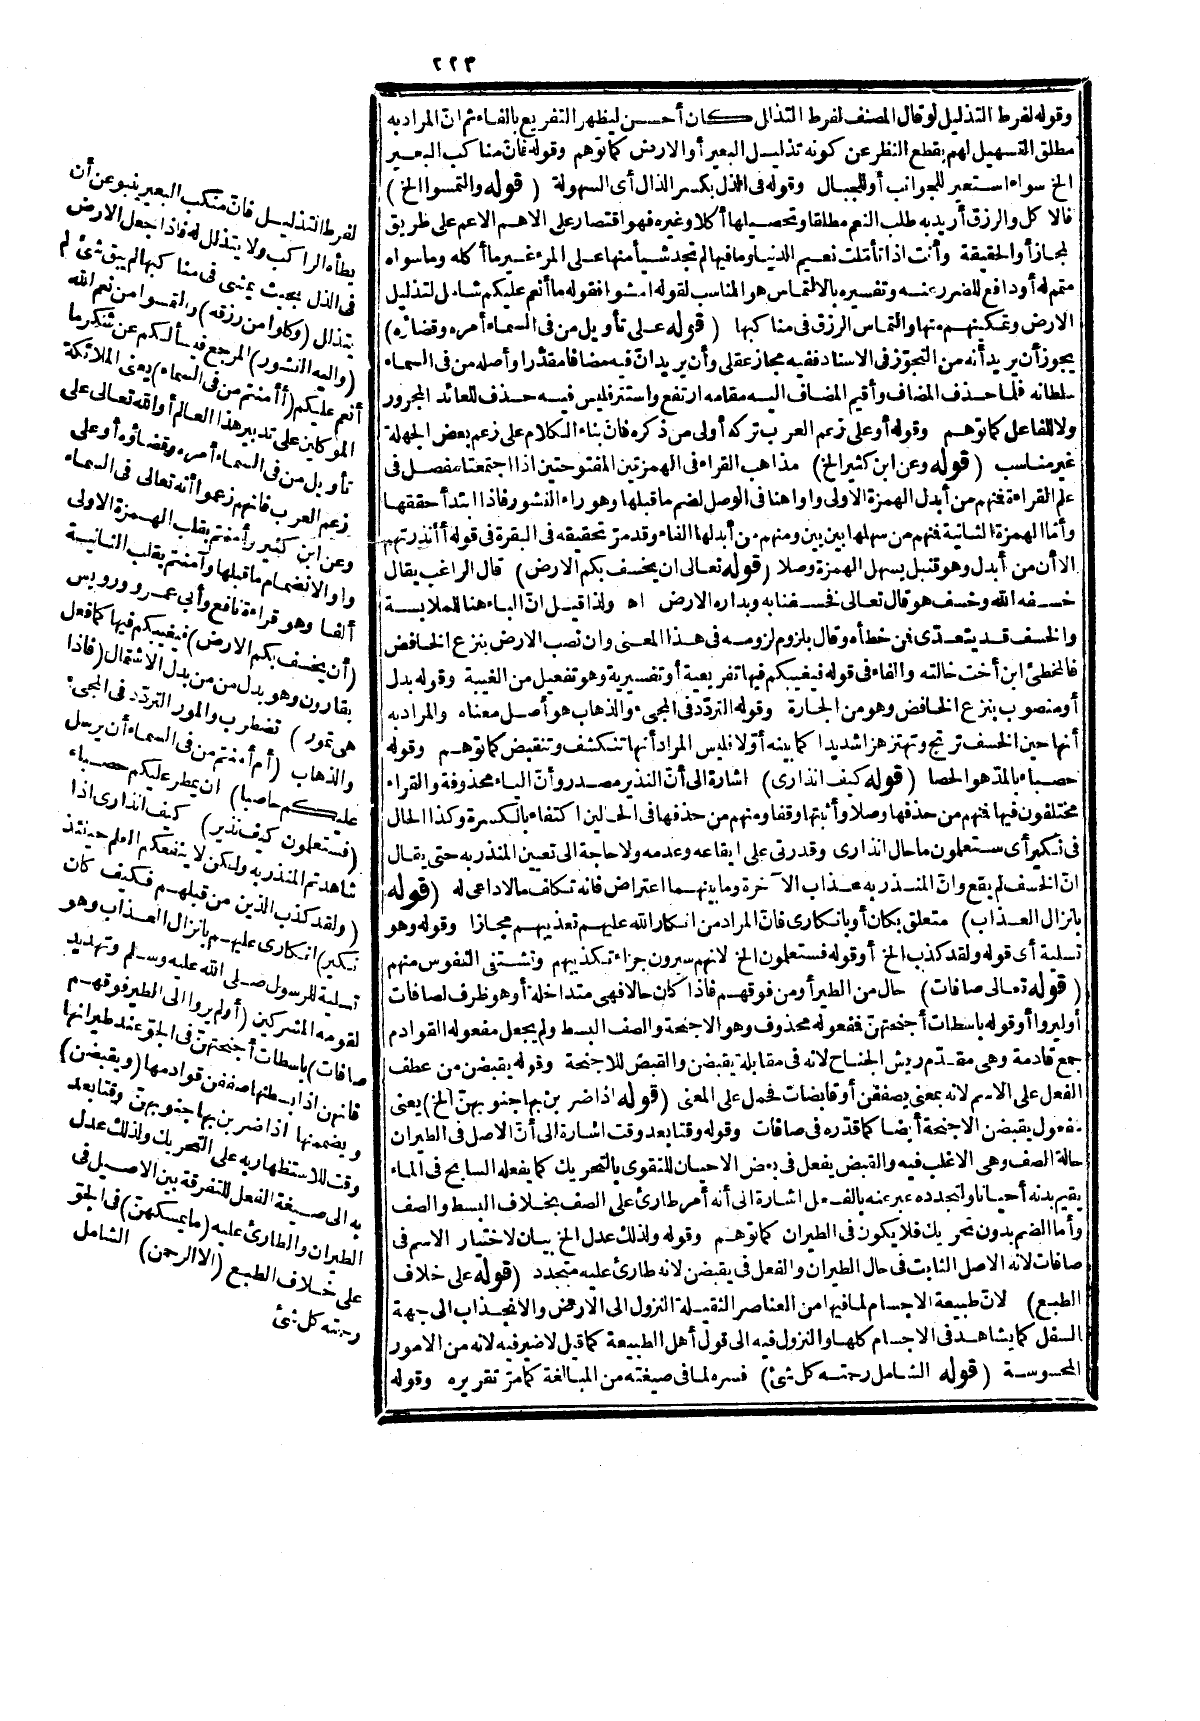 ٢٢٣
وقوله لفرط التذليل لو قال المصنف لفرط التذلل كان أحسن ليظهر التفريع بالفاء ثم انّ المراد به
مطلق التسهيل لهم بقطع النظر عن كونه تذليل البعير أو الارض كما توهم وقوله فانّ مناكب البعير
الخ سواء استعير للجوانب أو للجبال وقوله فى الذل بكسر الذال أى السهولة (قوله والتمسوا الخ)
فالاكل والرزق أريد به طلب النعم مطلقا وتحصيلها أكلا وغيره فهو اقتصار على الاهم الاعم على طريق
لمجاز أو الحقيقة وأنت اذا تأملت نعيم الدنيا وما فيها لم تجد شيأ منها على المرء غير ما أكله وما سواه
متمم له أو دافع للضرر عنه وتفسيره بالالتماس هو المناسب لقوله امشوا فقوله ما أنعم عليكم شامل لتذليل
الارض وتمكينهم منها والتماس الرزق فى مناكبها (قوله على تأويل من فى السماء أمره وقضاؤه)
يجوز أن يريد أنه من التجوّز فى الاسناد ففيه مجاز عقلى وأن يريد انّ فيه مضافا مقدّرا وأصله من فى السماء
سلطانه فلما حذف المضاف وأقيم المضاف اليه مقامه ارتفع واستتر فليس فيه حذف للعائد المجرور
ولا للفاعل كما توهم وقوله أو على زعم العرب تركه أولى من ذكره فانّ بناء الكلام على زعم بعض الجهلة
غير مناسب (قوله وعن ابن كثير الخ) مذاهب القراء فى الهمزتين المفتوحتين اذا اجتمعتا مفصل فى
علم القراءة فمنهم من أبدل الهمزة الاولى واوا هنا فى الوصل لضم ما قبلها وهو راء النشور فاذا ابتدأ حققها
وأمّا الهمزة الثانية فمنهم من سهلها بين بين ومنهم من أبدلها ألفا وقد مرّ تحقيقه فى البقرة فى قوله أأنذرتهم
الا أن من أبدل وهو قنبل يسهل الهمزة وصلا (قوله تعالى ان يخسف بكم الارض) قال الراغب يقال
خسفه الله وخسف هو قال تعالى فخسفنا به وبداره الارض اه ولذا قيل انّ الباء هنا للملابسة
والخسف قد يتعدّى فمن خطأه وقال بلزوم لزومه فى هذا المعنى وان نصب الارض بنزع الخافض
فالمخطئ ابن أخت خالته والفاء فى قوله فيغيبكم فيها تفريعية أو تفسيرية وهو تفعيل من الغيبة وقوله بدل
أو منصوب بنزع الخافض وهو من الجارة وقوله التردّد فى المجىء والذهاب هو أصل معناه والمراد به
أنها حين الخسف ترتج وتهتز هزا شديدا كما بينه أوّلا فليس المراد أنها تنكشف وتنقبض كما توهم وقوله
حصباء بالمدّ هو الحصا (قوله كيف انذارى) اشارة الى أنّ النذير مصدر وأنّ الياء محذوفة والقراء
مختلفون فيها فمنهم من حذفها وصلا وأثبتها وقفا ومنهم من حذفها فى الحالين اكتفاء بالكسرة وكذا الحال
فى نكير أى ستعلمون ما حال انذارى وقدرتى على ايقاعه وعدمه ولا حاجة الى تعيين المنذر به حتى يقال
انّ الخسف لم يقع وانّ المنذر به عذاب الآخرة وما بينهما اعتراض فانه تكلف ما لا داعى له (قوله
بانزال العذاب) متعلق بكان أو بانكارى فانّ المراد من انكار الله عليهم تعذيبهم مجازا وقوله وهو
تسلية أى قوله ولقد كذب الخ أو قوله فستعلمون الخ لانهم سيرون جزاء تكذيبهم وتشتفى النفوس منهم
(قوله تعالى صافات) حال من الطير أو من فوقهم فاذا كان حالا فهى متداخلة أو هو ظرف لصافات
أو ليروا أو قوله باسطات أجنحتهنّ فمفعوله محذوف وهو الاجنحة والصف البسط ولم يجعل مفعوله القوادم
جمع قادمة وهى مقدّم ريش الجناح لانه فى مقابلة يقبضن والقبض للاجنحة وقوله يقبضن من عطف
الفعل على الاسم لانه بمعنى يصففن أو قابضات فحمل على المعنى (قوله اذا ضربن بها جنوبهنّ الخ) يعنى
مفعول يقبضن الاجنحة أيضا كما قدّره فى صافات وقوله وقتا بعد وقت اشارة الى أنّ الاصل فى الطيران
حالة الصف وهى الاغلب فيه والقبض يفعل فى بعض الاحيان للتقوى بالتحريك كما يفعله السابح فى الماء
يقيم بدنه أحيانا ولتجدده عبر عنه بالفعل اشارة الى أنه أمر طارئ على الصف بخلاف البسط والصف
وأما الضم بدون تحريك فلا يكون فى الطيران كما توهم وقوله ولذلك عدل الخ بيان لاختيار الاسم فى
صافات لانه الاصل الثابت فى حال الطيران والفعل فى يقبضن لانه طارئ عليه متجدد (قوله على خلاف
الطبع) لانّ طبيعة الاجسام لما فيها من العناصر الثقيلة النزول الى الارض والانجذاب الى جهة
السفل كما يشاهد فى الاجسام كلها والنزول فيه الى قول أهل الطبيعة كما قيل لا ضير فيه لانه من الامور
المحسوسة (قوله الشامل رحمته كل شئ) فسره لما فى صيغته من المبالغة كما مرّ تقريره وقوله
لفرط التذليل فانّ منكب البعير ينبو عن أن
يطأه الراكب ولا يتذلل له فاذا جعل الارض
فى الذل بحيث يمشى فى مناكبها لم يبق شئ لم
يتذلل (وكلوا من رزقه) والتمسوا من نعم الله
(واليه النشور) المرجع فيسألكم عن شكر ما
أنعم عليكم (أأمنتم من فى السماء) يعنى الملائكة
الموكلين على تدبير هذا العالم أو الله تعالى على
تأويل من فى السماء أمره وقضاؤه أو على
زعم العرب فانهم زعموا أنه تعالى فى السماء
وعن ابن كثير وأمنتم بقلب الهمزة الاولى
واوا لانضمام ما قبلها وآمنتم بقلب الثانية
ألفا وهو قراءة نافع وأبى عمرو ورويس
(أن يخسف بكم الارض) فيغيبكم فيها كما فعل
بقارون وهو بدل من من بدل الاشتمال (فاذا
هى تمور) تضطرب والمور التردّد فى المجىء
والذهاب (أم أمنتم من فى السماء أن يرسل
عليكم حاصبا) ان يمطر عليكم حصباء
(فستعلمون كيف نذير) كيف انذارى اذا
شاهدتم المنذر به ولكن لا ينفعكم العلم حينئذ
(ولقد كذب الذين من قبلهم فكيف كان
نكير) انكارى عليهم بانزال العذاب وهو
تسلية للرسول صلى الله عليه وسلم وتهديد
لقومه المشركين (أولم يروا الى الطير فوقهم
صافات) باسطات أجنحتهنّ فى الجوّ عند طيرانها
فانهن اذا بسطنها صففن قوادمها (ويقبضن)
ويضممنها اذا ضربن بها جنوبهنّ وقتا بعد
وقت للاستظهار به على التحريك ولذلك عدل
به الى صيغة الفعل للتفرقة بين الاصيل فى
الطيران والطارئ عليه (ما يمسكهنّ) فى الجوّ
على خلاف الطبع (الا الرحمن) الشامل
رحمته كل شئ